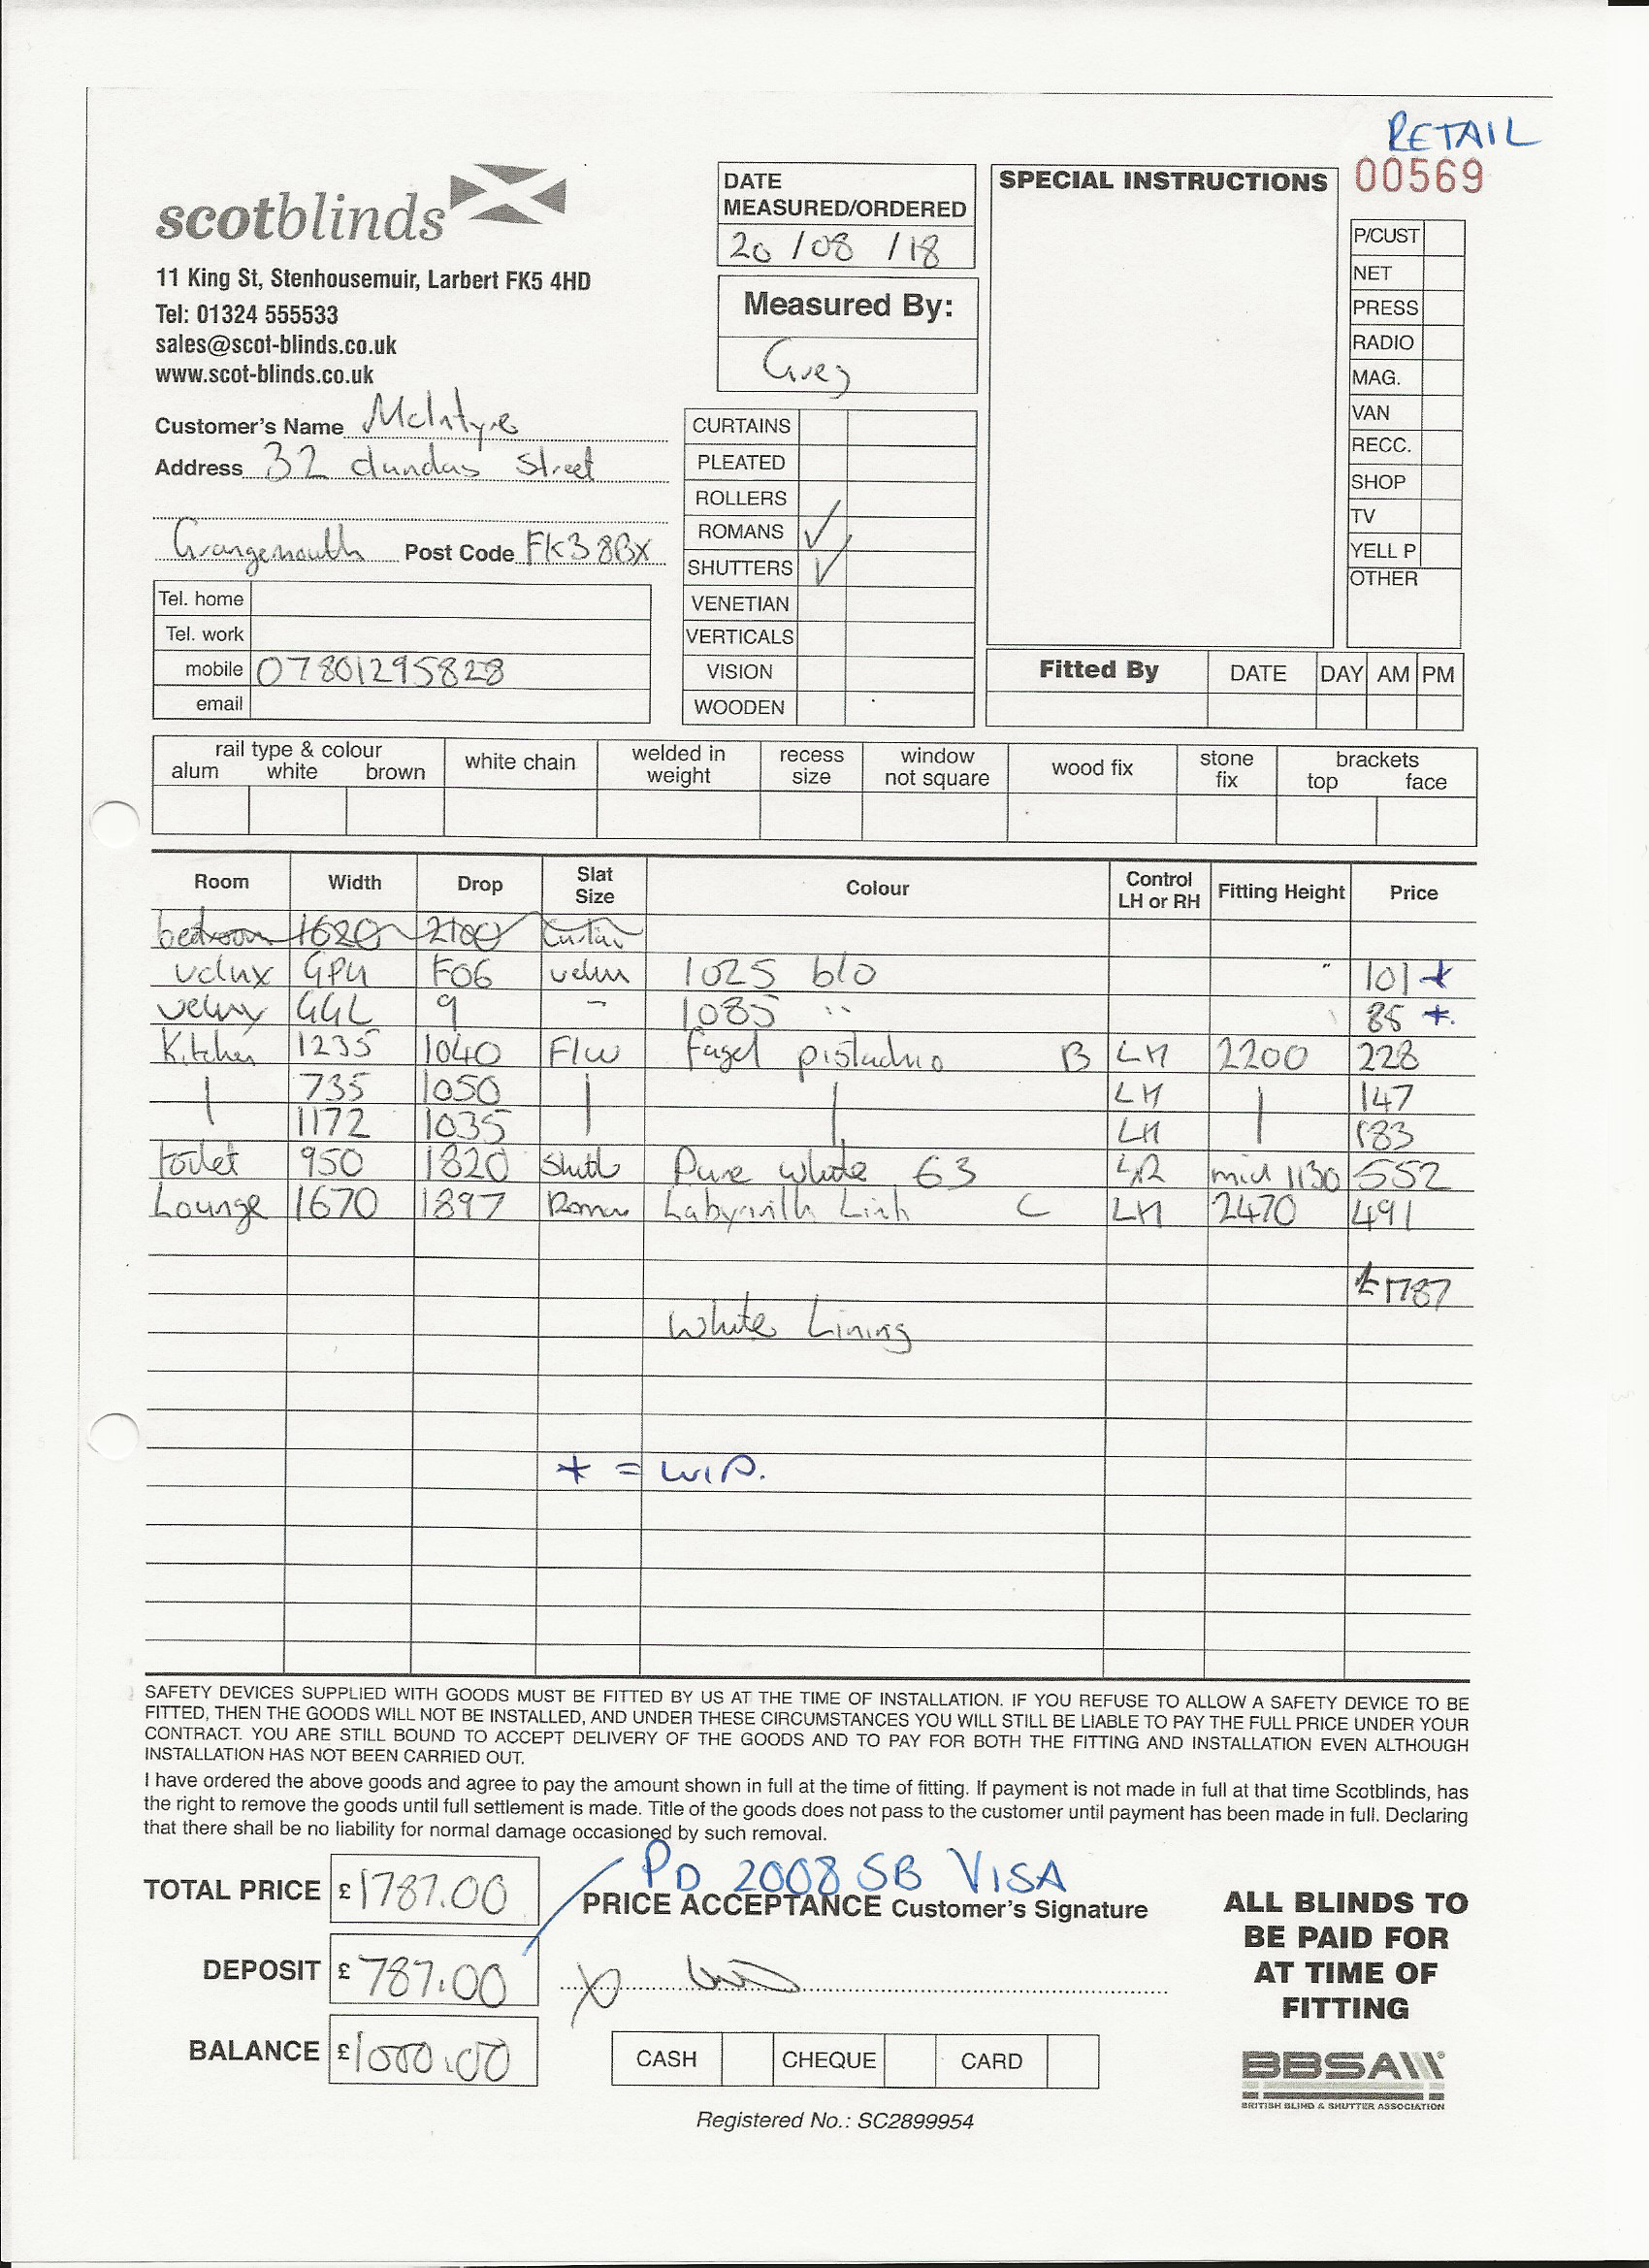 RETAIL
00569
scotblinds
11 King St, Stenhousemuir, Larbert FK5 4HD
Tel: 01324 555533
sales@scot-blinds.co.uk
www.scot-blinds.co.uk
Customer's Name McIntyre
Address 32 dundas Street
Grangemouth Post Code FK3 8BX
Tel. home
Tel. work
mobile 07801295828
email
DATE
MEASURED/ORDERED
20 /08 /18
Measured By:
Greg
CURTAINS
PLEATED
ROLLERS
ROMANS ✓
SHUTTERS ✓
VENETIAN
VERTICALS
VISION
WOODEN
SPECIAL INSTRUCTIONS
P/CUST
NET
PRESS
RADIO
MAG.
VAN
RECC.
SHOP
TV
YELL P
OTHER
Fitted By DATE DAY AM PM
rail type & colour
alum white brown
white chain
welded in
weight
recess
size
window
not square
wood fix
stone
fix
brackets
top face
Room Width Drop Slat Size Colour Control LH or RH Fitting Height Price
bedroom 1620 2100 Curtain
velux GPU F06 velux 1025 blo 101 *
velux GGL 9 " 1085 " 85 *
Kitchen 1235 1040 F/W Fagel pistachio B LH 2200 228
735 1050 LH 147
1172 1035 LH 183
toilet 950 1820 Shutt Pure white 63 LR mid 1130 552
Lounge 1670 1897 Roman Labyrinth C LH 2470 491
£1787
White Lining
* =
SAFETY DEVICES SUPPLIED WITH GOODS MUST BE FITTED BY US AT THE TIME OF INSTALLATION. IF YOU REFUSE TO ALLOW A SAFETY DEVICE TO BE
FITTED, THEN THE GOODS WILL NOT BE INSTALLED, AND UNDER THESE CIRCUMSTANCES YOU WILL STILL BE LIABLE TO PAY THE FULL PRICE UNDER YOUR
CONTRACT. YOU ARE STILL BOUND TO ACCEPT DELIVERY OF THE GOODS AND TO PAY FOR BOTH THE FITTING AND INSTALLATION EVEN ALTHOUGH
INSTALLATION HAS NOT BEEN CARRIED OUT.
I have ordered the above goods and agree to pay the amount shown in full at the time of fitting. If payment is not made in full at that time Scotblinds, has
the right to remove the goods until full settlement is made. Title of the goods does not pass to the customer until payment has been made in full. Declaring
that there shall be no liability for normal damage occasioned by such removal.
PD 2008 SB VISA
TOTAL PRICE £1787.00
PRICE ACCEPTANCE Customer's Signature
DEPOSIT £787.00
X
BALANCE £1000.00
CASH CHEQUE CARD
ALL BLINDS TO
BE PAID FOR
AT TIME OF
FITTING
BBSA
BRITISH BLIND & SHUTTER ASSOCIATION
Registered No.: SC2899954